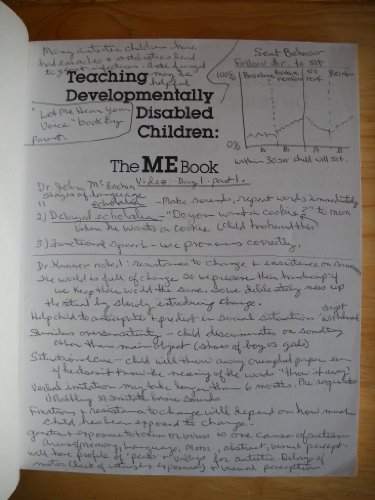 Many autistic children have
had earaches +
to
be
helpful
"Let Me Hear Your
Voice" book by
parent.
Seat Behavior
Follow dir. to sit
100%
0%
Baseline
No
A B A B
within 30 sec child will sit.
Teaching
Developmentally
Disabled
Children:
The ME Book
Video - Day 1 - part 1.
Dr. John McEachin
stages of language
1) echolalia - Make sounds, repeat words immediately
2) Delayed echolalia - "Do you want a cookie?" to mom
when he wants a cookie (child
3) Functional speech - use pronouns correctly.
Dr. Kanner noted: resistance to change + insistence on sameness
The world is full of change so we increase their handicap if
we keep their world the same. So we deliberately mess up
the

by slowly introducing change.
Help child to anticipate + predict in social situations
Stimulus oversensitivity - child discriminates on something
other than main object (shoes of boy vs girl)
Situational cue - child will throw away crumpled paper even
if he doesn't know the meaning of the words "throw it away"
Verbal imitation may take longer than 6 months. Pre requisites
1) Babbling 2) imitate basic sounds
Fixation + resistance to change will depend on how much
child has been exposed to change.
greater + exposure to toxin or virus is one cause of autism
Areas of memory, language, Motor, abstract, visual percept.
will have profile of "peaks + valleys" for autistic. Delays of
motor (lack of interest + exposure) + visual perception